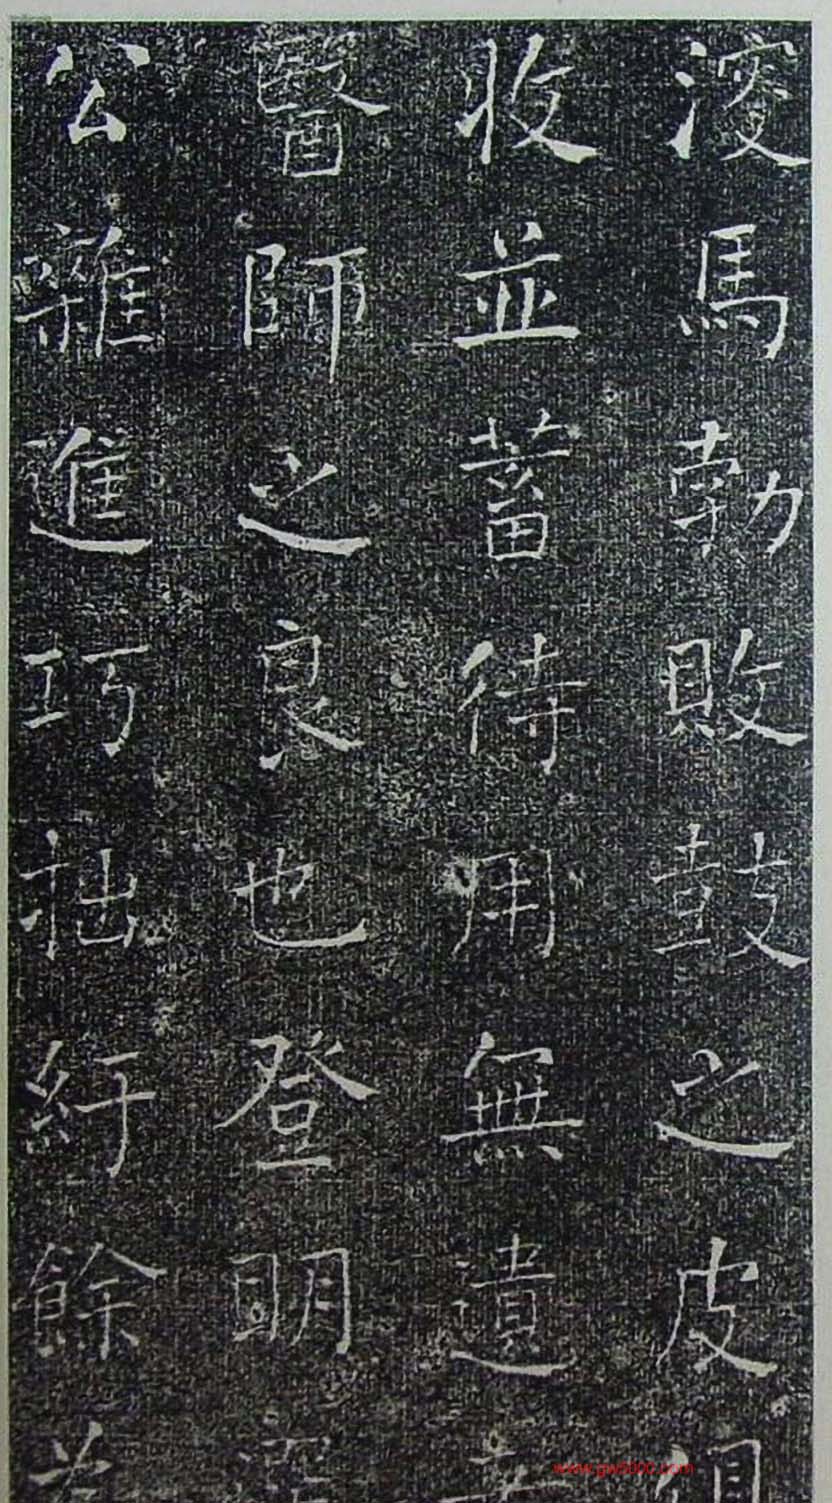 溲馬勃敗鼓之皮俱
收並蓄待用無遺者
醫師之良也登明選
公雜進巧拙紆餘為